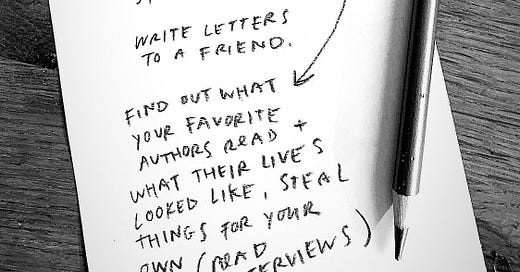 WRITE LETTERS
TO A FRIEND.
FIND OUT WHAT
YOUR FAVORITE
AUTHORS READ +
WHAT THEIR LIVE'S
LOOKED LIKE, STEAL
THINGS FOR YOUR
OWN (READ
INTERVIEWS)